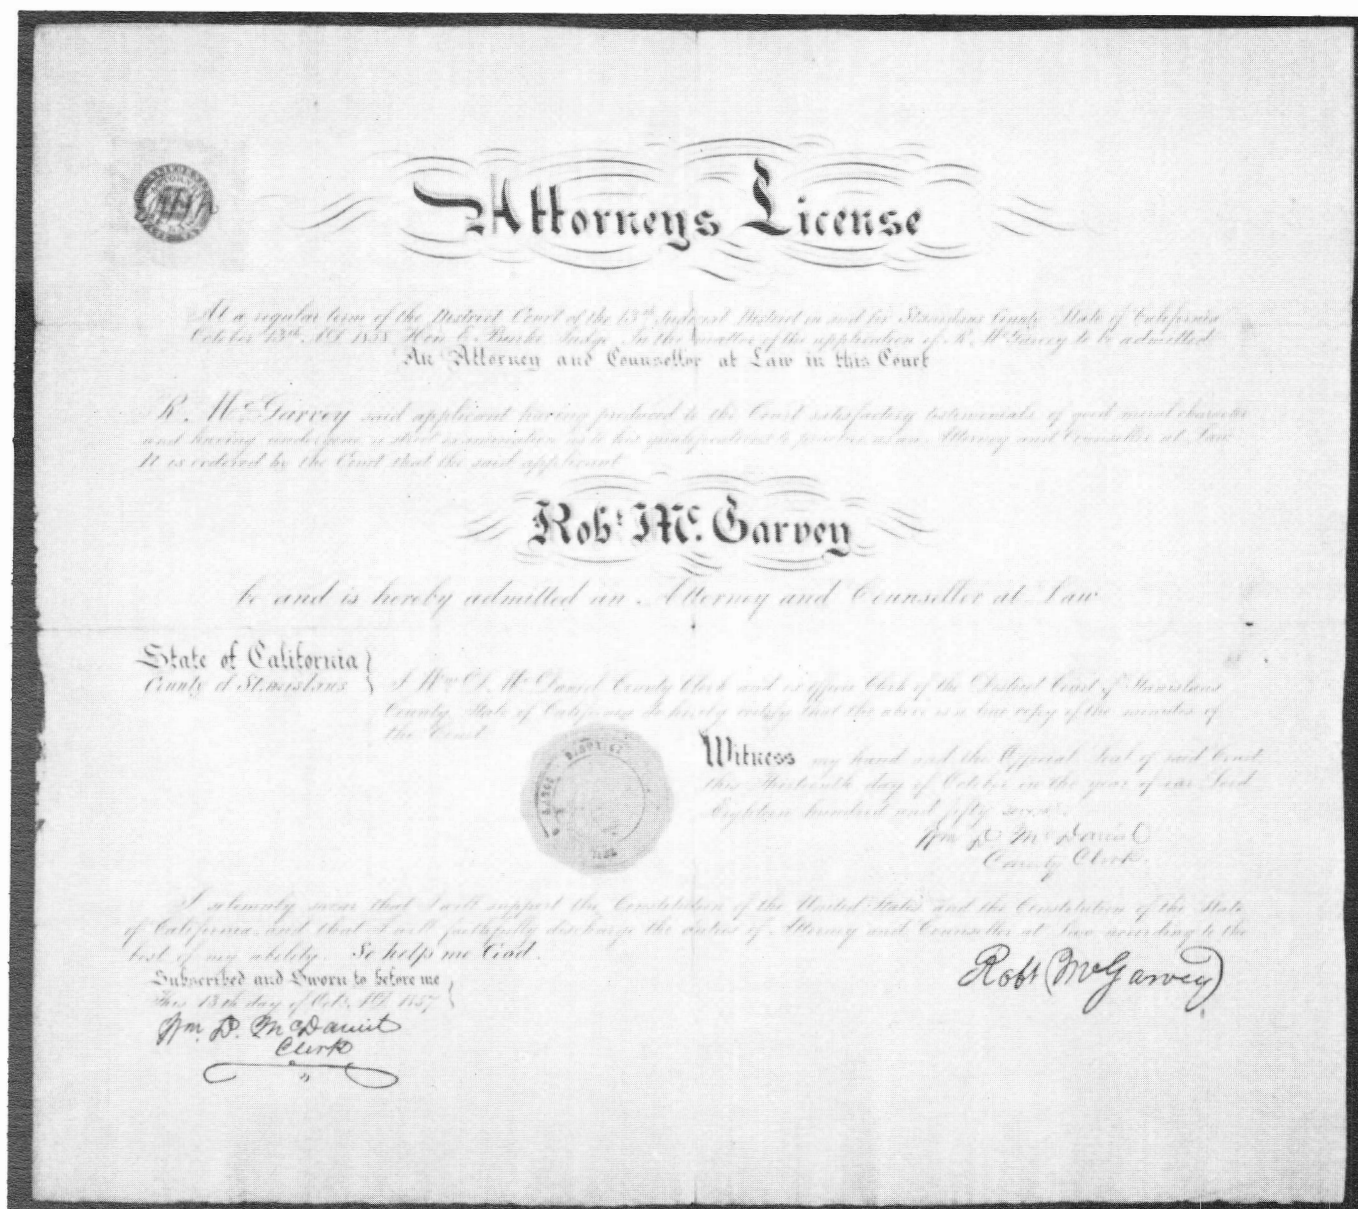 Attorneys License
At a regular term of the District Court of the 13th Judicial District in and for Stanislaus County State of California
October 13th AD Hon E. Burke Judge In the matter of the application of R. McGarvey to be admitted
An Attorney and Counsellor at Law in this Court
R. McGarvey said applicant having produced to the Court satisfactory testimonials of good moral character
and having undergone a strict examination as to his qualifications to practice as an Attorney and Counsellor at Law
It is ordered by the Court that the said applicant
Robt. Mc. Garvey
be and is hereby admitted an Attorney and Counsellor at Law
State of California
County of Stanislaus
I Wm D. McDaniel County Clerk and ex officio Clerk of the District Court of Stanislaus
County, State of California do hereby certify that the above is a true copy of the minutes of
the Court
Witness my hand and the Official Seal of said Court
this Thirteenth day of October in the year of our Lord
Eighteen hundred and fifty seven.
Wm D McDaniel
County Clerk.
I solemnly swear that I will support the Constitution of the United States and the Constitution of the State
of California, and that I will faithfully discharge the duties of Attorney and Counsellor at Law according to the
best of my ability. So help me God.
Subscribed and Sworn to before me
This 13th day of Oct. AD. 1857
Robt McGarvey
Wm. D. McDaniel
Clerk